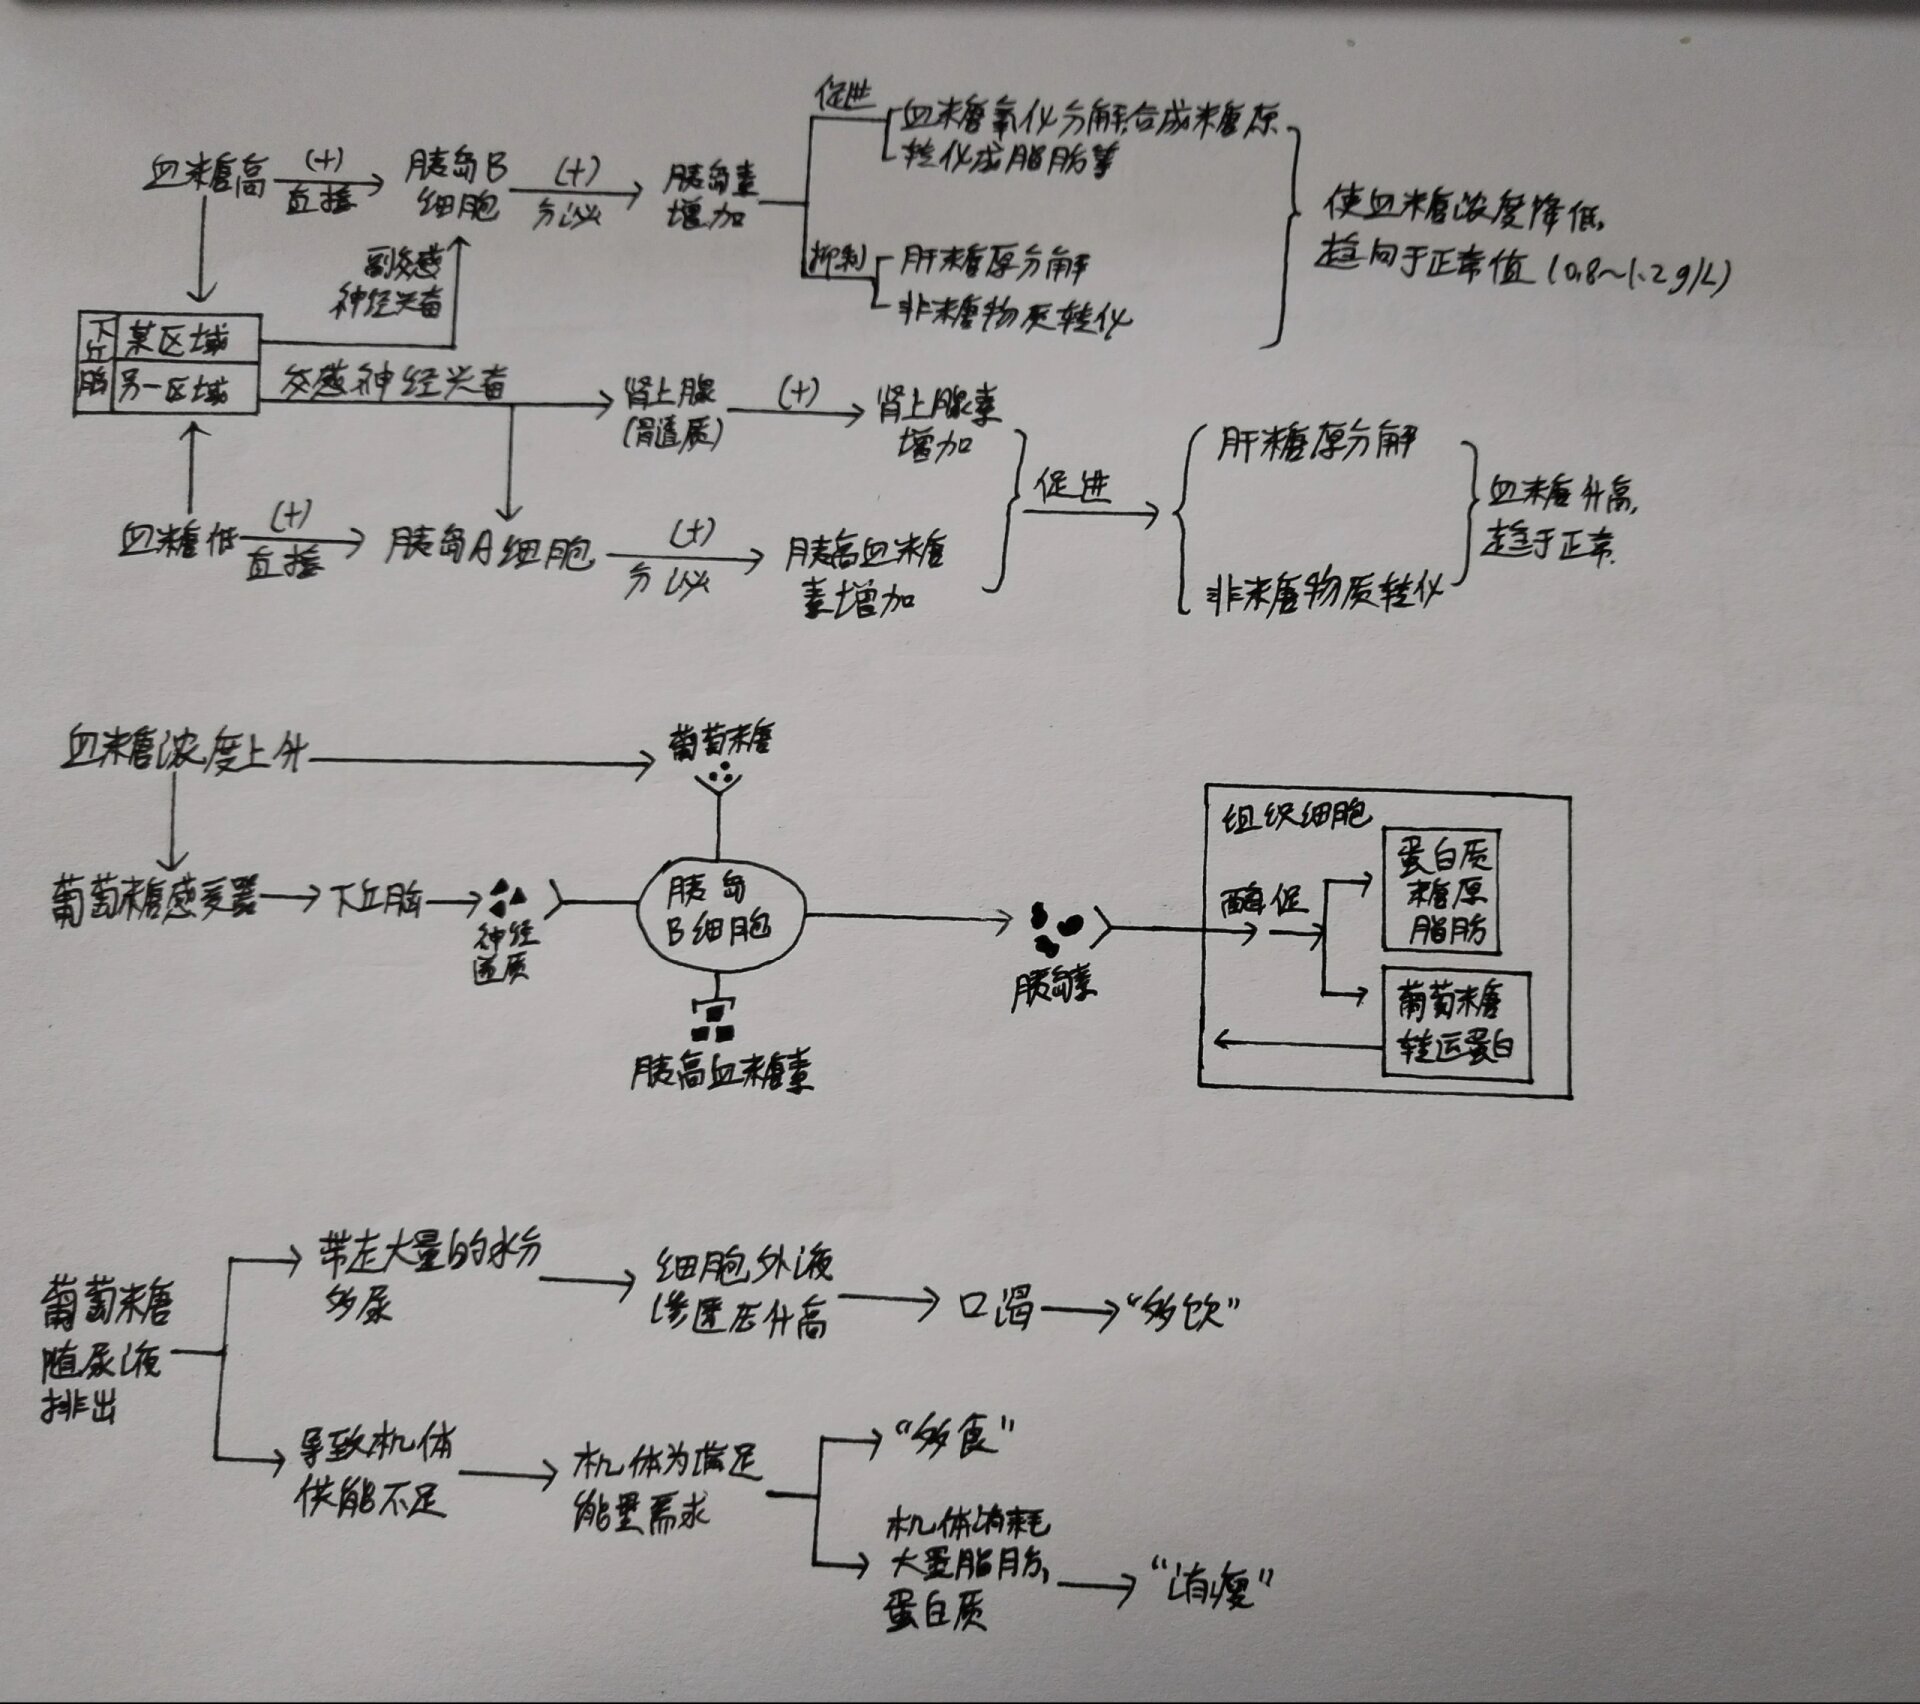 促进
血糖氧化分解,合成糖原
转化成脂肪等
血糖高
(+)
直接
胰岛B
细胞
(+)
分泌
胰岛素
增加
使血糖浓度降低,
趋向于正常值(0.8~1.2g/L)
抑制
肝糖原分解
非糖物质转化
副交感
神经兴奋
下丘脑
某区域
另一区域
交感神经兴奋
肾上腺
(髓质)
(+)
肾上腺素
增加
血糖低
(+)
直接
胰岛A细胞
(+)
分泌
胰高血糖
素增加
促进
肝糖原分解
非糖物质转化
血糖升高,
趋于正常.
血糖浓度上升
葡萄糖
葡萄糖感受器
下丘脑
神经
递质
胰岛
B细胞
胰高血糖素
胰岛素
组织细胞
酶促
蛋白质
糖原
脂肪
葡萄糖
转运蛋白
葡萄糖
随尿液
排出
带走大量的水分
多尿
细胞外液
渗透压升高
口渴
“多饮”
导致机体
供能不足
机体为满足
能量需求
“多食”
机体消耗
大量脂肪,
蛋白质
“消瘦”